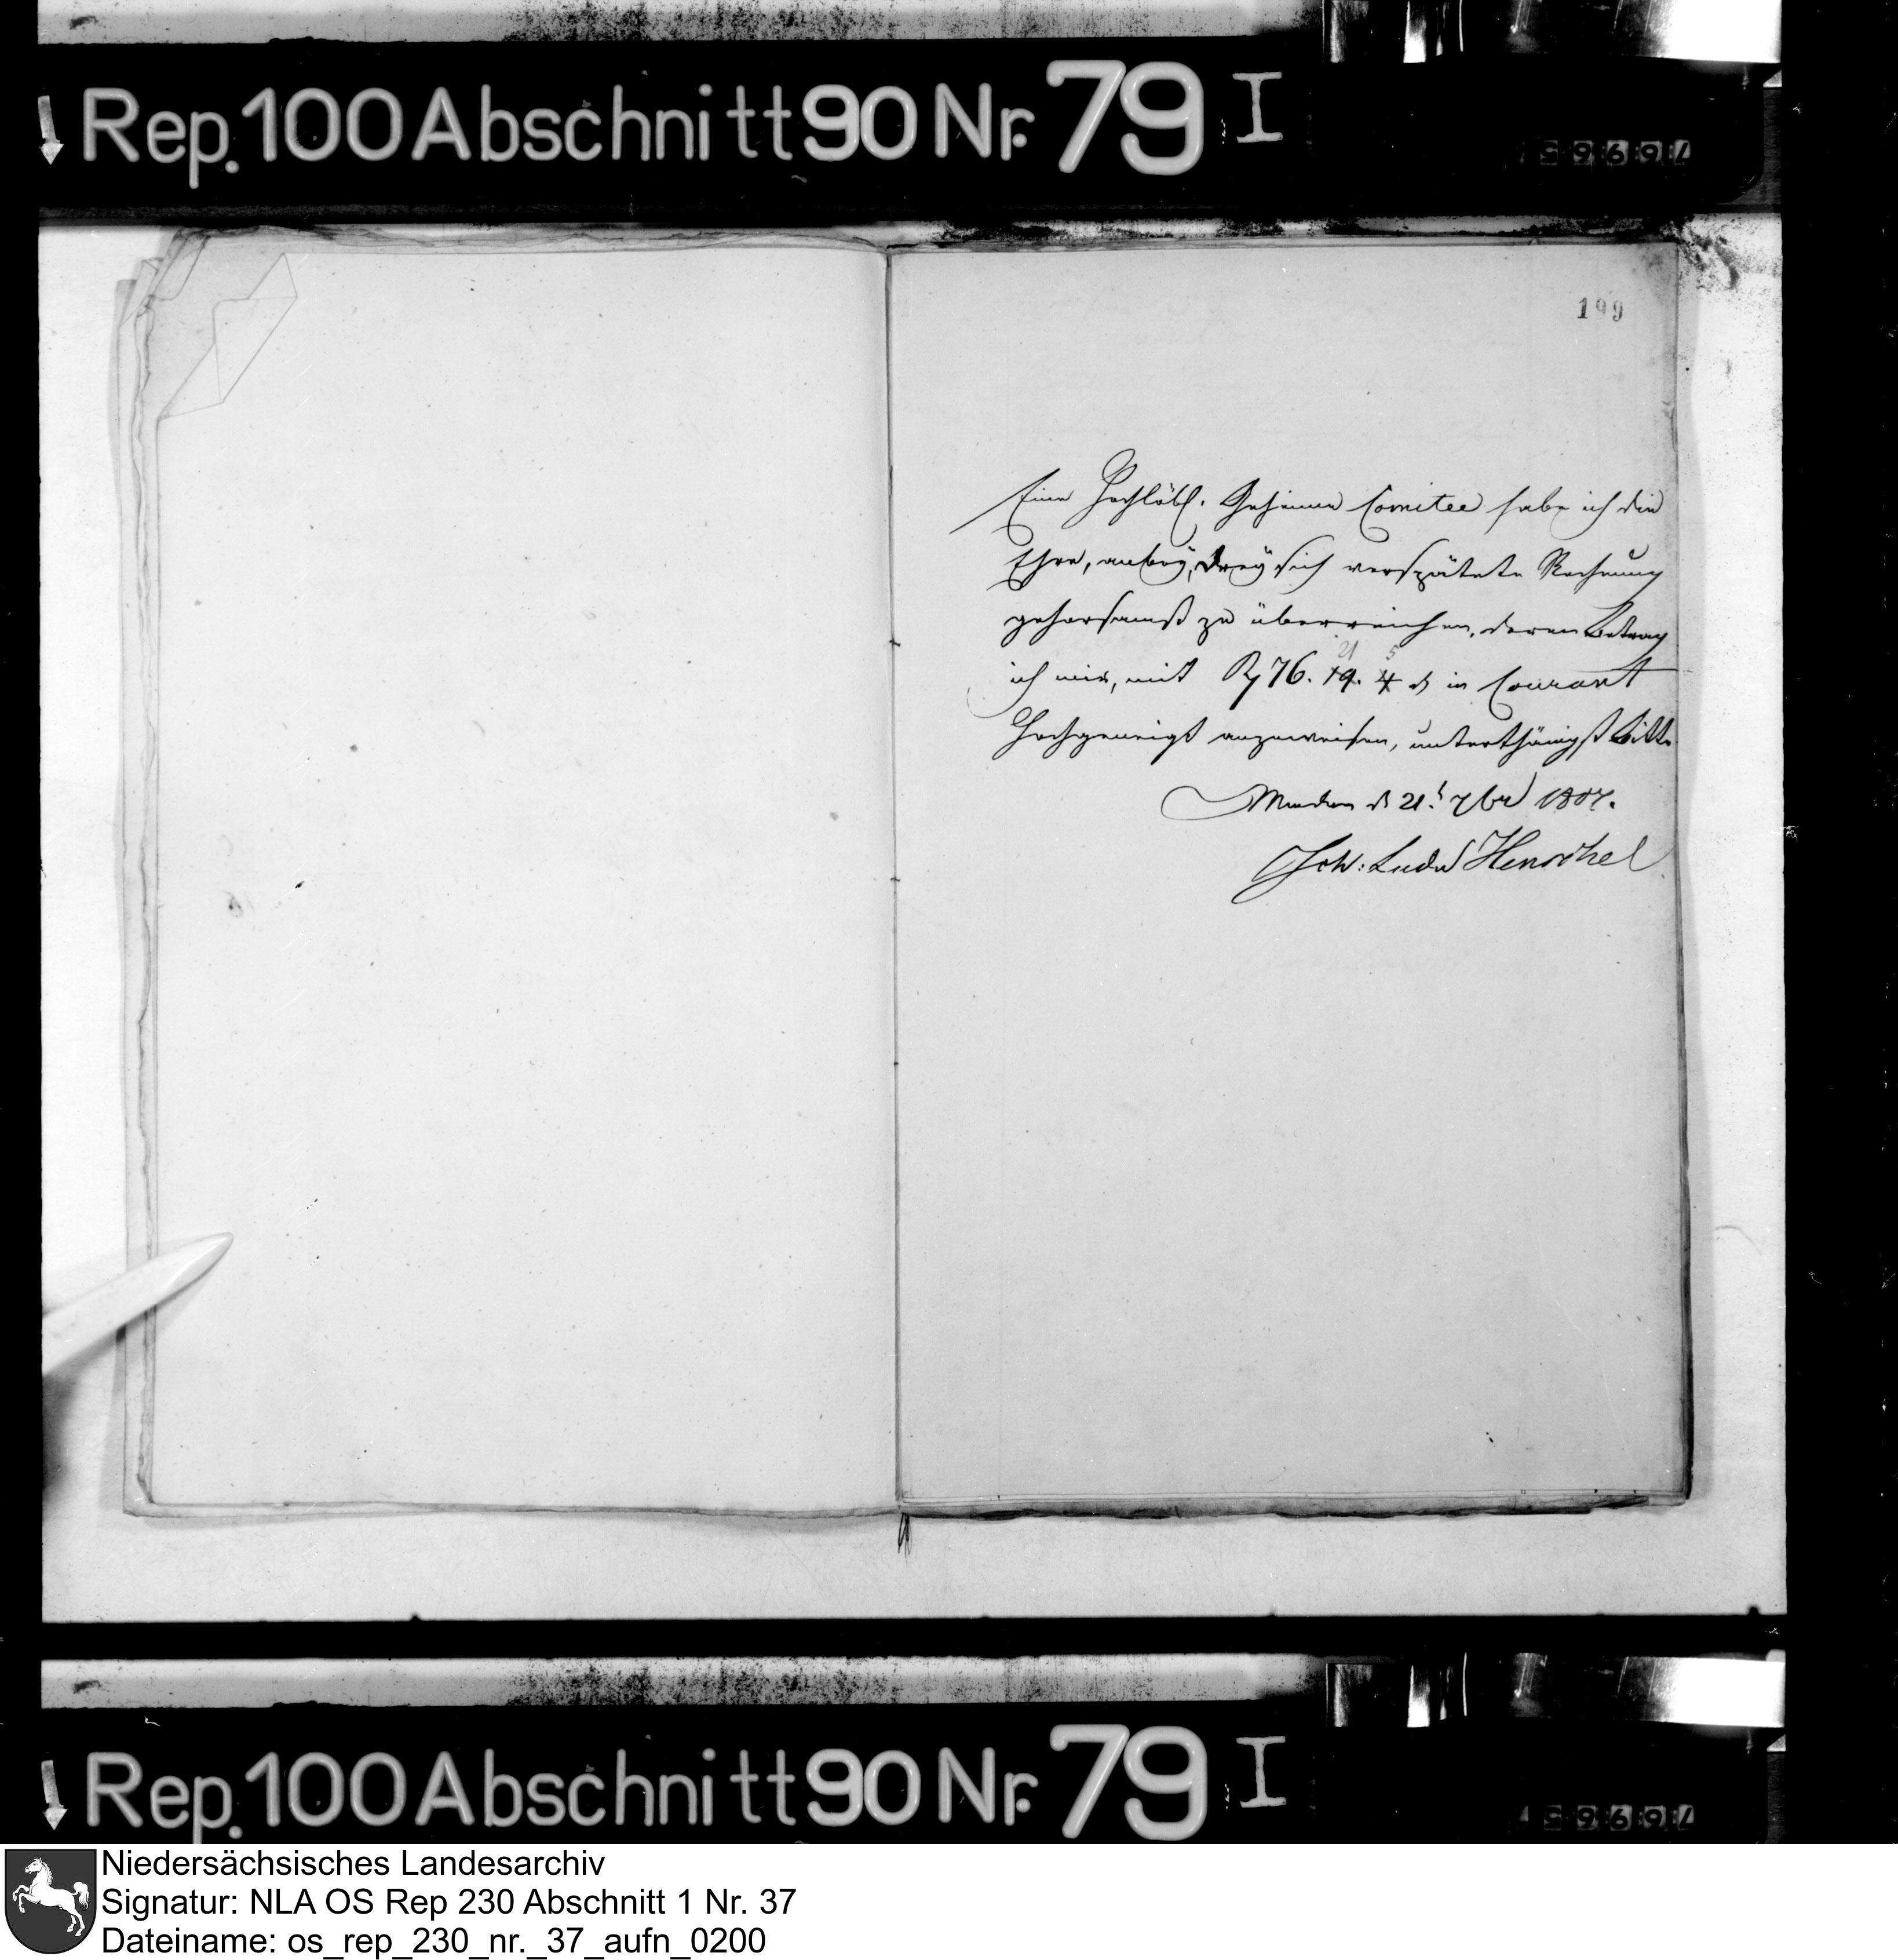 Rep. 100 Abschnitt 90 Nr. 79 I
76965
199
Eine Hochlöbl. Geheime Comitee habe ich die
Ehre, anbey, drey sich verspätete Rechnung
gehorsamst zu überreichen, deren Betrag
21 5
ich mir, mit Rt 76. 19. 4 d in Courant
Hochgeneigt anzuweisen, unterthänigst bitte.
d 21t 7br 1807.
Joh: Ludw Henschel
Rep. 100 Abschnitt 90 Nr. 79 I
76965
Niedersächsisches Landesarchiv
Signatur: NLA OS Rep 230 Abschnitt 1 Nr. 37
Dateiname: os_rep_230_nr._37_aufn_0200